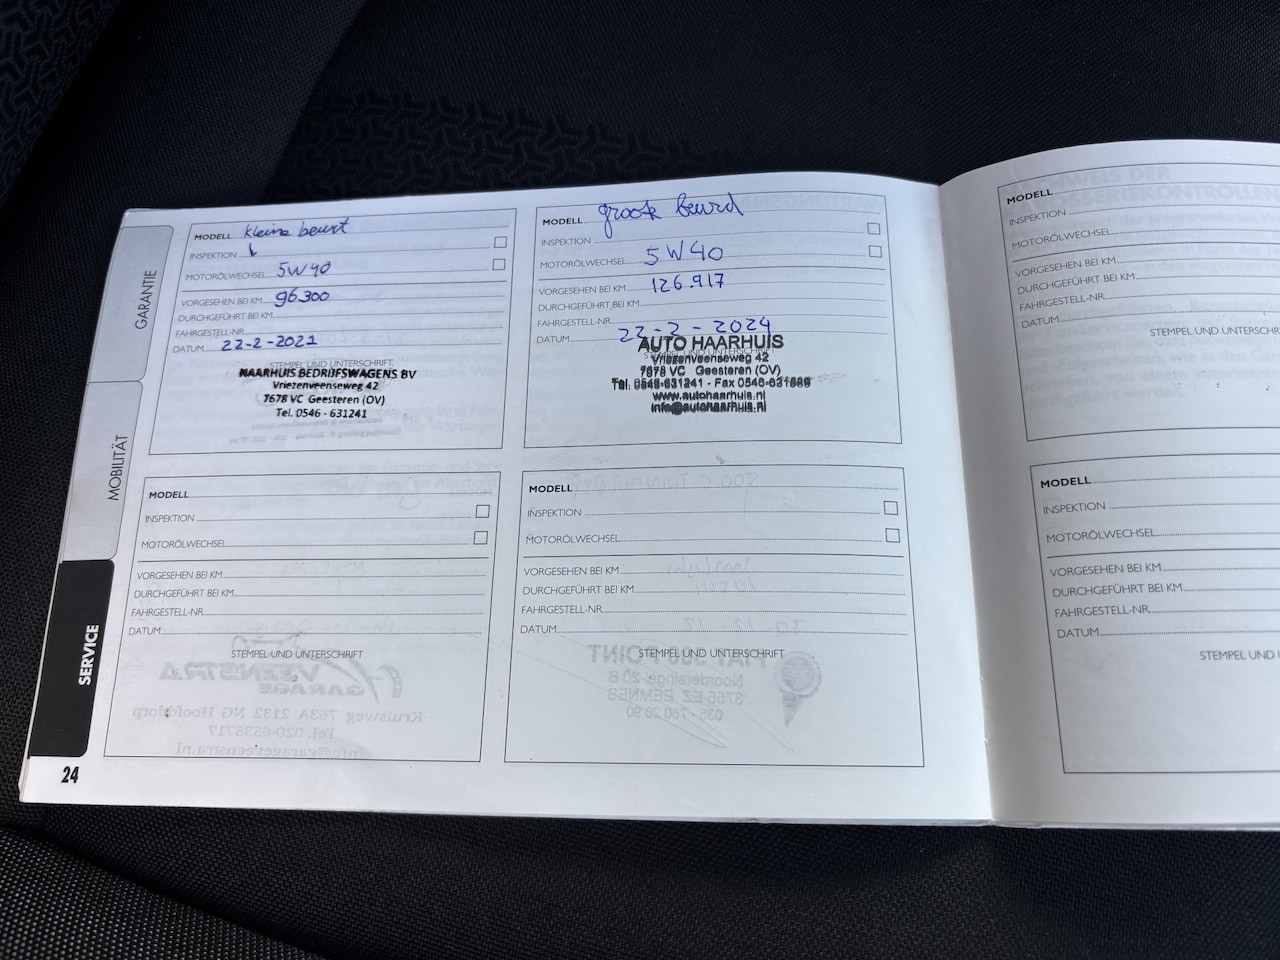 GARANTIE
MOBILITÄT
SERVICE
MODELL kleine beurt
INSPEKTION
MOTORÖLWECHSEL 5W40
VORGESEHEN BEI KM 96.300
DURCHGEFÜHRT BEI KM
FAHRGESTELL-NR.
DATUM 22-2-2021
STEMPEL UND UNTERSCHRIFT
HAARHUIS BEDRIJFSWAGENS BV
Vriezenveenseweg 42
7678 VC Geesteren (OV)
Tel. 0546 - 631241
MODELL groote beurd
INSPEKTION
MOTORÖLWECHSEL 5W40
VORGESEHEN BEI KM 126.917
DURCHGEFÜHRT BEI KM
FAHRGESTELL-NR.
DATUM 22-2-2024
AUTO HAARHUIS
Vriezenveenseweg 42
7678 VC Geesteren (OV)
Tel. 0546-631241 - Fax 0546-631686
www.autohaarhuis.nl
info@autohaarhuis.nl
MODELL
INSPEKTION
MOTORÖLWECHSEL
VORGESEHEN BEI KM
DURCHGEFÜHRT BEI KM
FAHRGESTELL-NR.
DATUM
STEMPEL UND UNTERSCHRIFT
MODELL
INSPEKTION
MOTORÖLWECHSEL
VORGESEHEN BEI KM
DURCHGEFÜHRT BEI KM
FAHRGESTELL-NR.
DATUM
STEMPEL UND UNTERSCHRIFT
24
MODELL
INSPEKTION
MOTORÖLWECHSEL
VORGESEHEN BEI KM
DURCHGEFÜHRT BEI KM
FAHRGESTELL-NR.
DATUM
STEMPEL UND UNTERSCHR
MODELL
INSPEKTION
MOTORÖLWECHSEL
VORGESEHEN BEI KM
DURCHGEFÜHRT BEI KM
FAHRGESTELL-NR.
DATUM
STEMPEL UND U